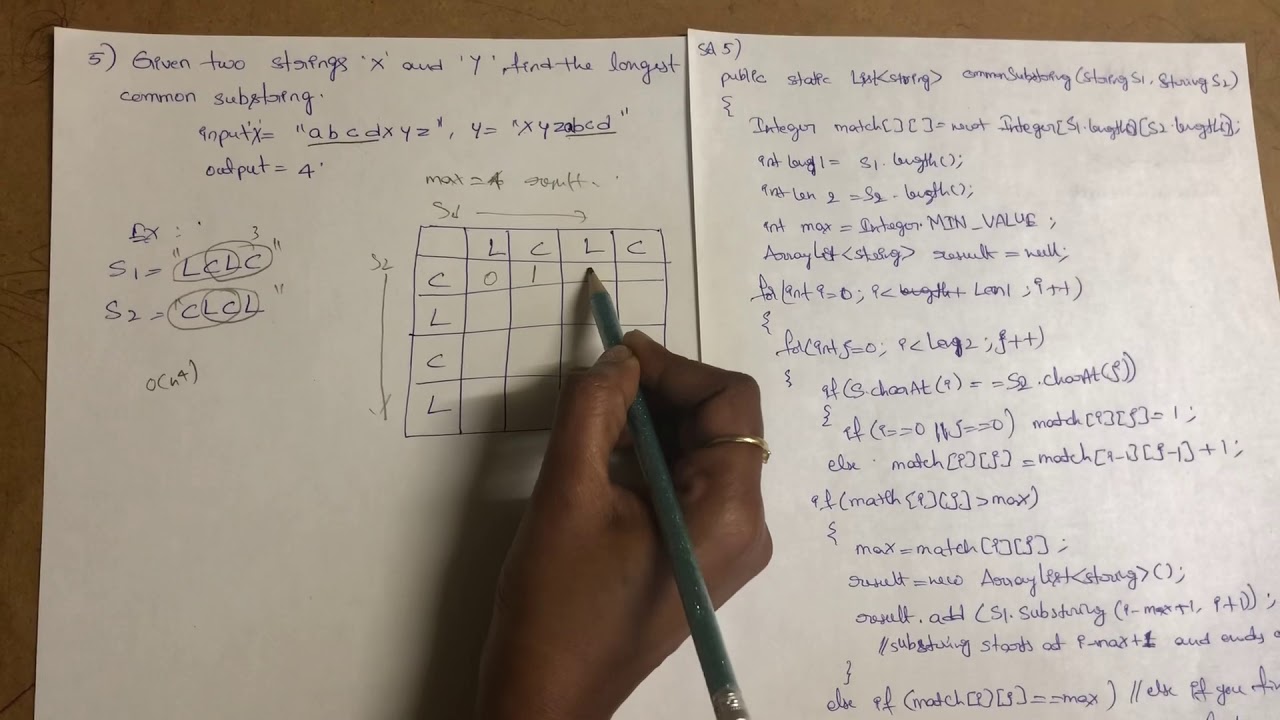 5) Given two strings 'X' and 'Y', find the longest
common substring.
input 'X' = "abcdxyz", Y = "xyzabcd"
output = 4.
max = result.
S1
Ex :
3
S1 = "LCLC"
S2 = "CLCL"
O(n4)
S2
L C L C
C 0 1
L
C
L
SA 5)
public static List<String> commonSubstring(String S1, String S2)
{
Integer match[][] = new Integer[S1.length][S2.length];
int leng1 = S1.length();
int len 2 = S2.length();
int max = Integer.MIN_VALUE ;
ArrayList<String> result = null;
for(int i=0; i< Len1 ; i++)
{
for(int j=0; i<leng2 ; j++)
{ if(S.charAt(i) = =S2.charAt(j))
{ if (i==0 || j==0) match[i][j]=1 ;
else match[i][j] =match[i-1][j-1]+1 ;
if(match[i][j]>max)
{
max=match[i][j] ;
result=new ArrayList<string>();
result.add (S1.substring (i-max+1, i+1)) ;
//substring starts at i-max+1 and ends
}
else if (match[i][j]==max) //else if you